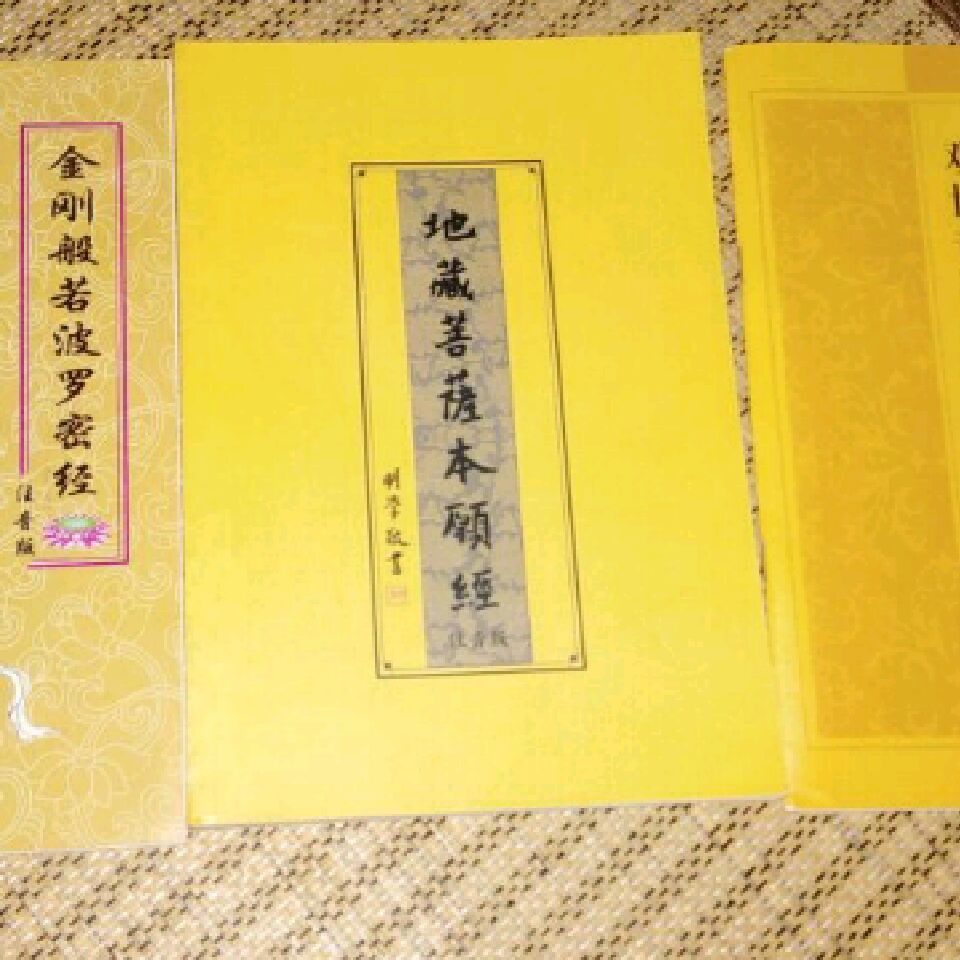 金刚般若波罗密经
注音版
地藏菩萨本願經
注音版